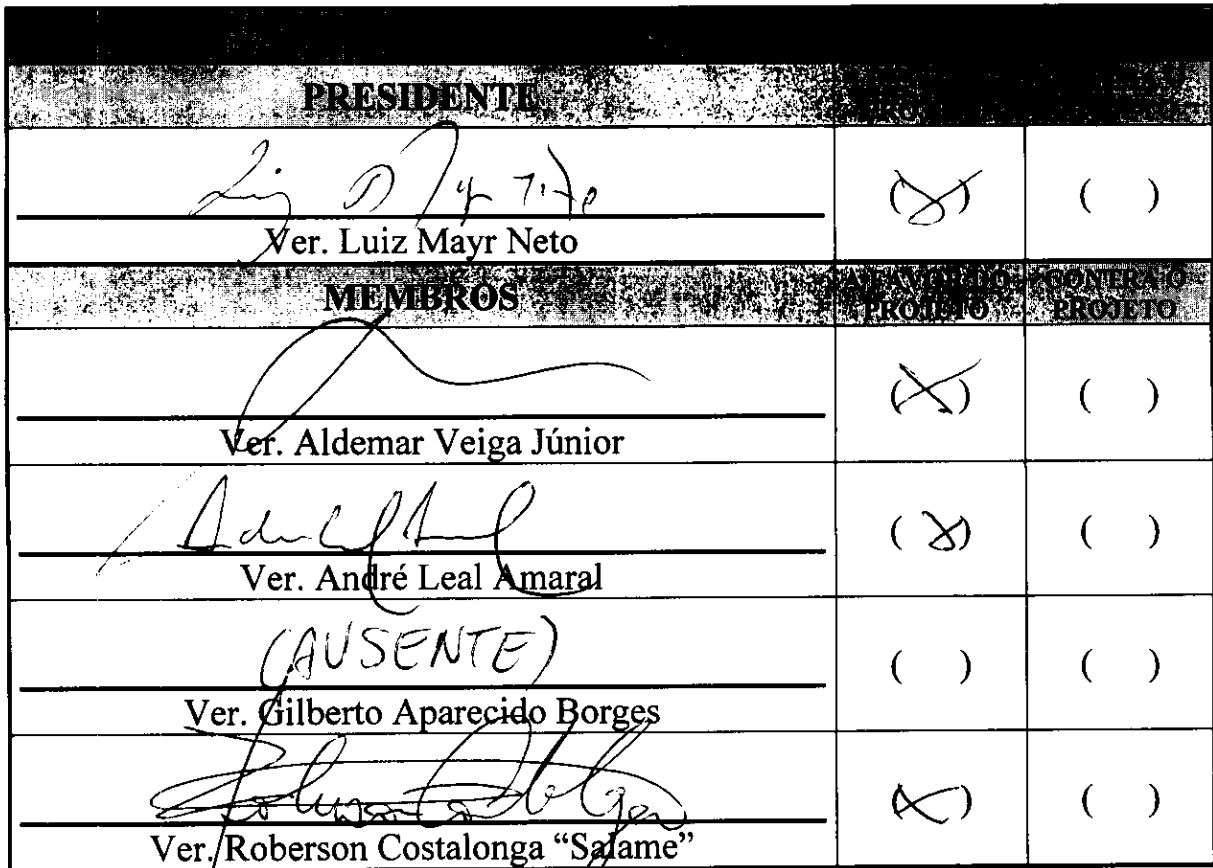 PRESIDENTE
( X ) ( )
Ver. Luiz Mayr Neto
MEMBROS
A FAVOR DO PROJETO
CONTRA O PROJETO
( X ) ( )
Ver. Aldemar Veiga Júnior
( X ) ( )
Ver. André Leal Amaral
(AUSENTE)
( ) ( )
Ver. Gilberto Aparecido Borges
( X ) ( )
Ver. Roberson Costalonga “Salame”